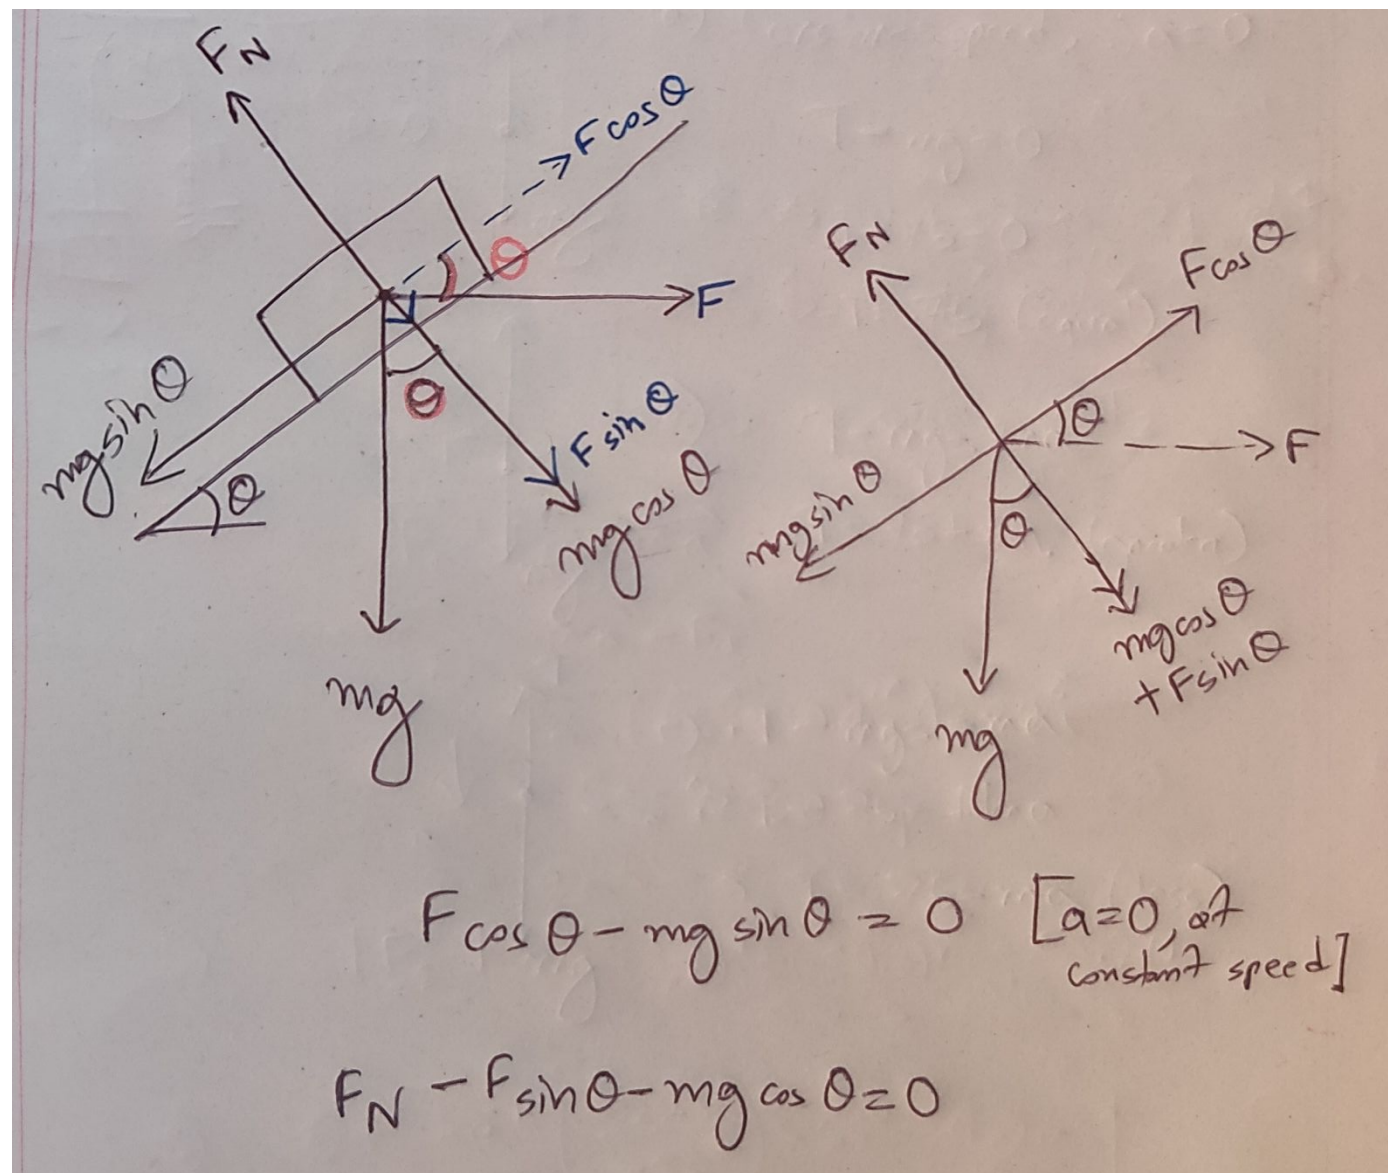 F_N
F cos θ
θ
F
mg sin θ
θ
θ
F sin θ
mg cos θ
mg
F_N
F cos θ
θ
F
mg sin θ
θ
mg cos θ
+ F sin θ
mg
F cos θ - mg sin θ = 0 [a=0, at
constant speed]
F_N - F sin θ - mg cos θ = 0